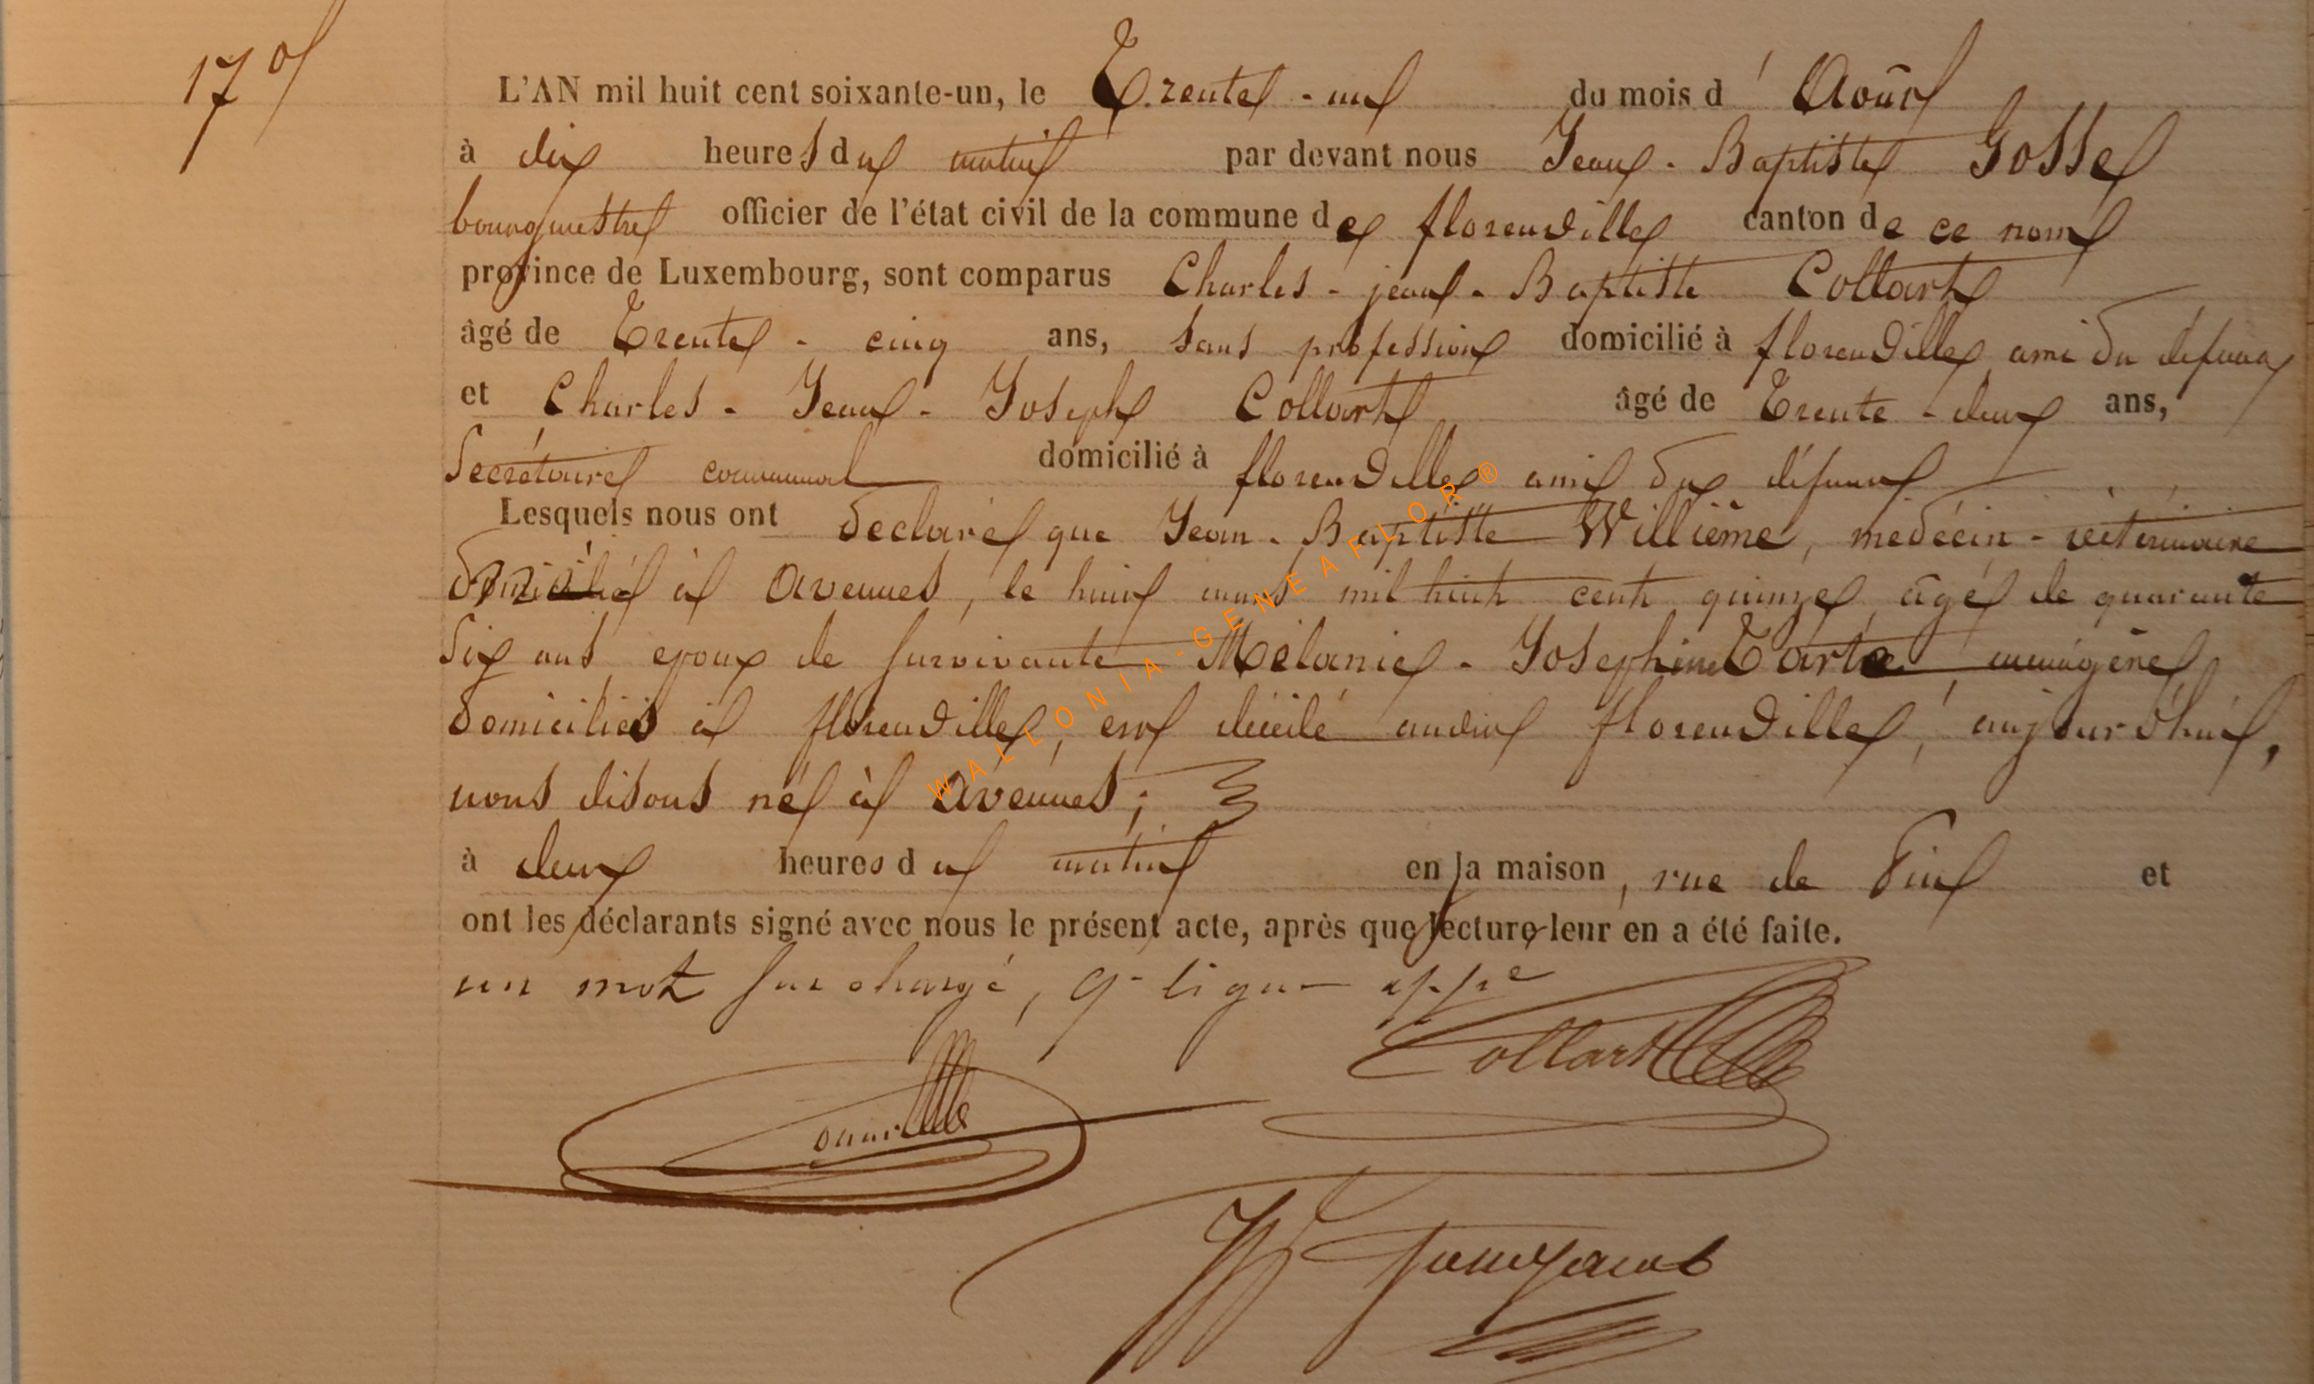 17e
L'AN mil huit cent soixante-un, le Trente-un du mois d'Août
à dix heures du matin par devant nous Jean-Baptiste Gosse
bourgmestre officier de l'état civil de la commune de florenville canton de ce nom
province de Luxembourg, sont comparus Charles-jean-Baptiste Collart
âgé de Trente-cinq ans, sans profession domicilié à florenville ami du défunt
et Charles-Jean-Joseph Collart âgé de Trente-deux ans,
Secrétaire communal domicilié à florenville ami du défunt
Lesquels nous ont déclaré que Jean-Baptiste Willième, medécin-vétérinaire
domicilié à Avennes, le huit mars mil huit cent quinze, âgé de quarante
six ans époux de survivante Mélanie-Josephine domiciliés, ménagère
domiciliés à florenville, est décédé audit florenville, aujourd'hui,
nous disons né à Avennes;
à deux heures du matin en la maison, rue de et
ont les déclarants signé avec nous le présent acte, après que lecture leur en a été faite.
un mot surchargé, 9e ligne appé
Collart
WALLONIA-GENEAFLOR®